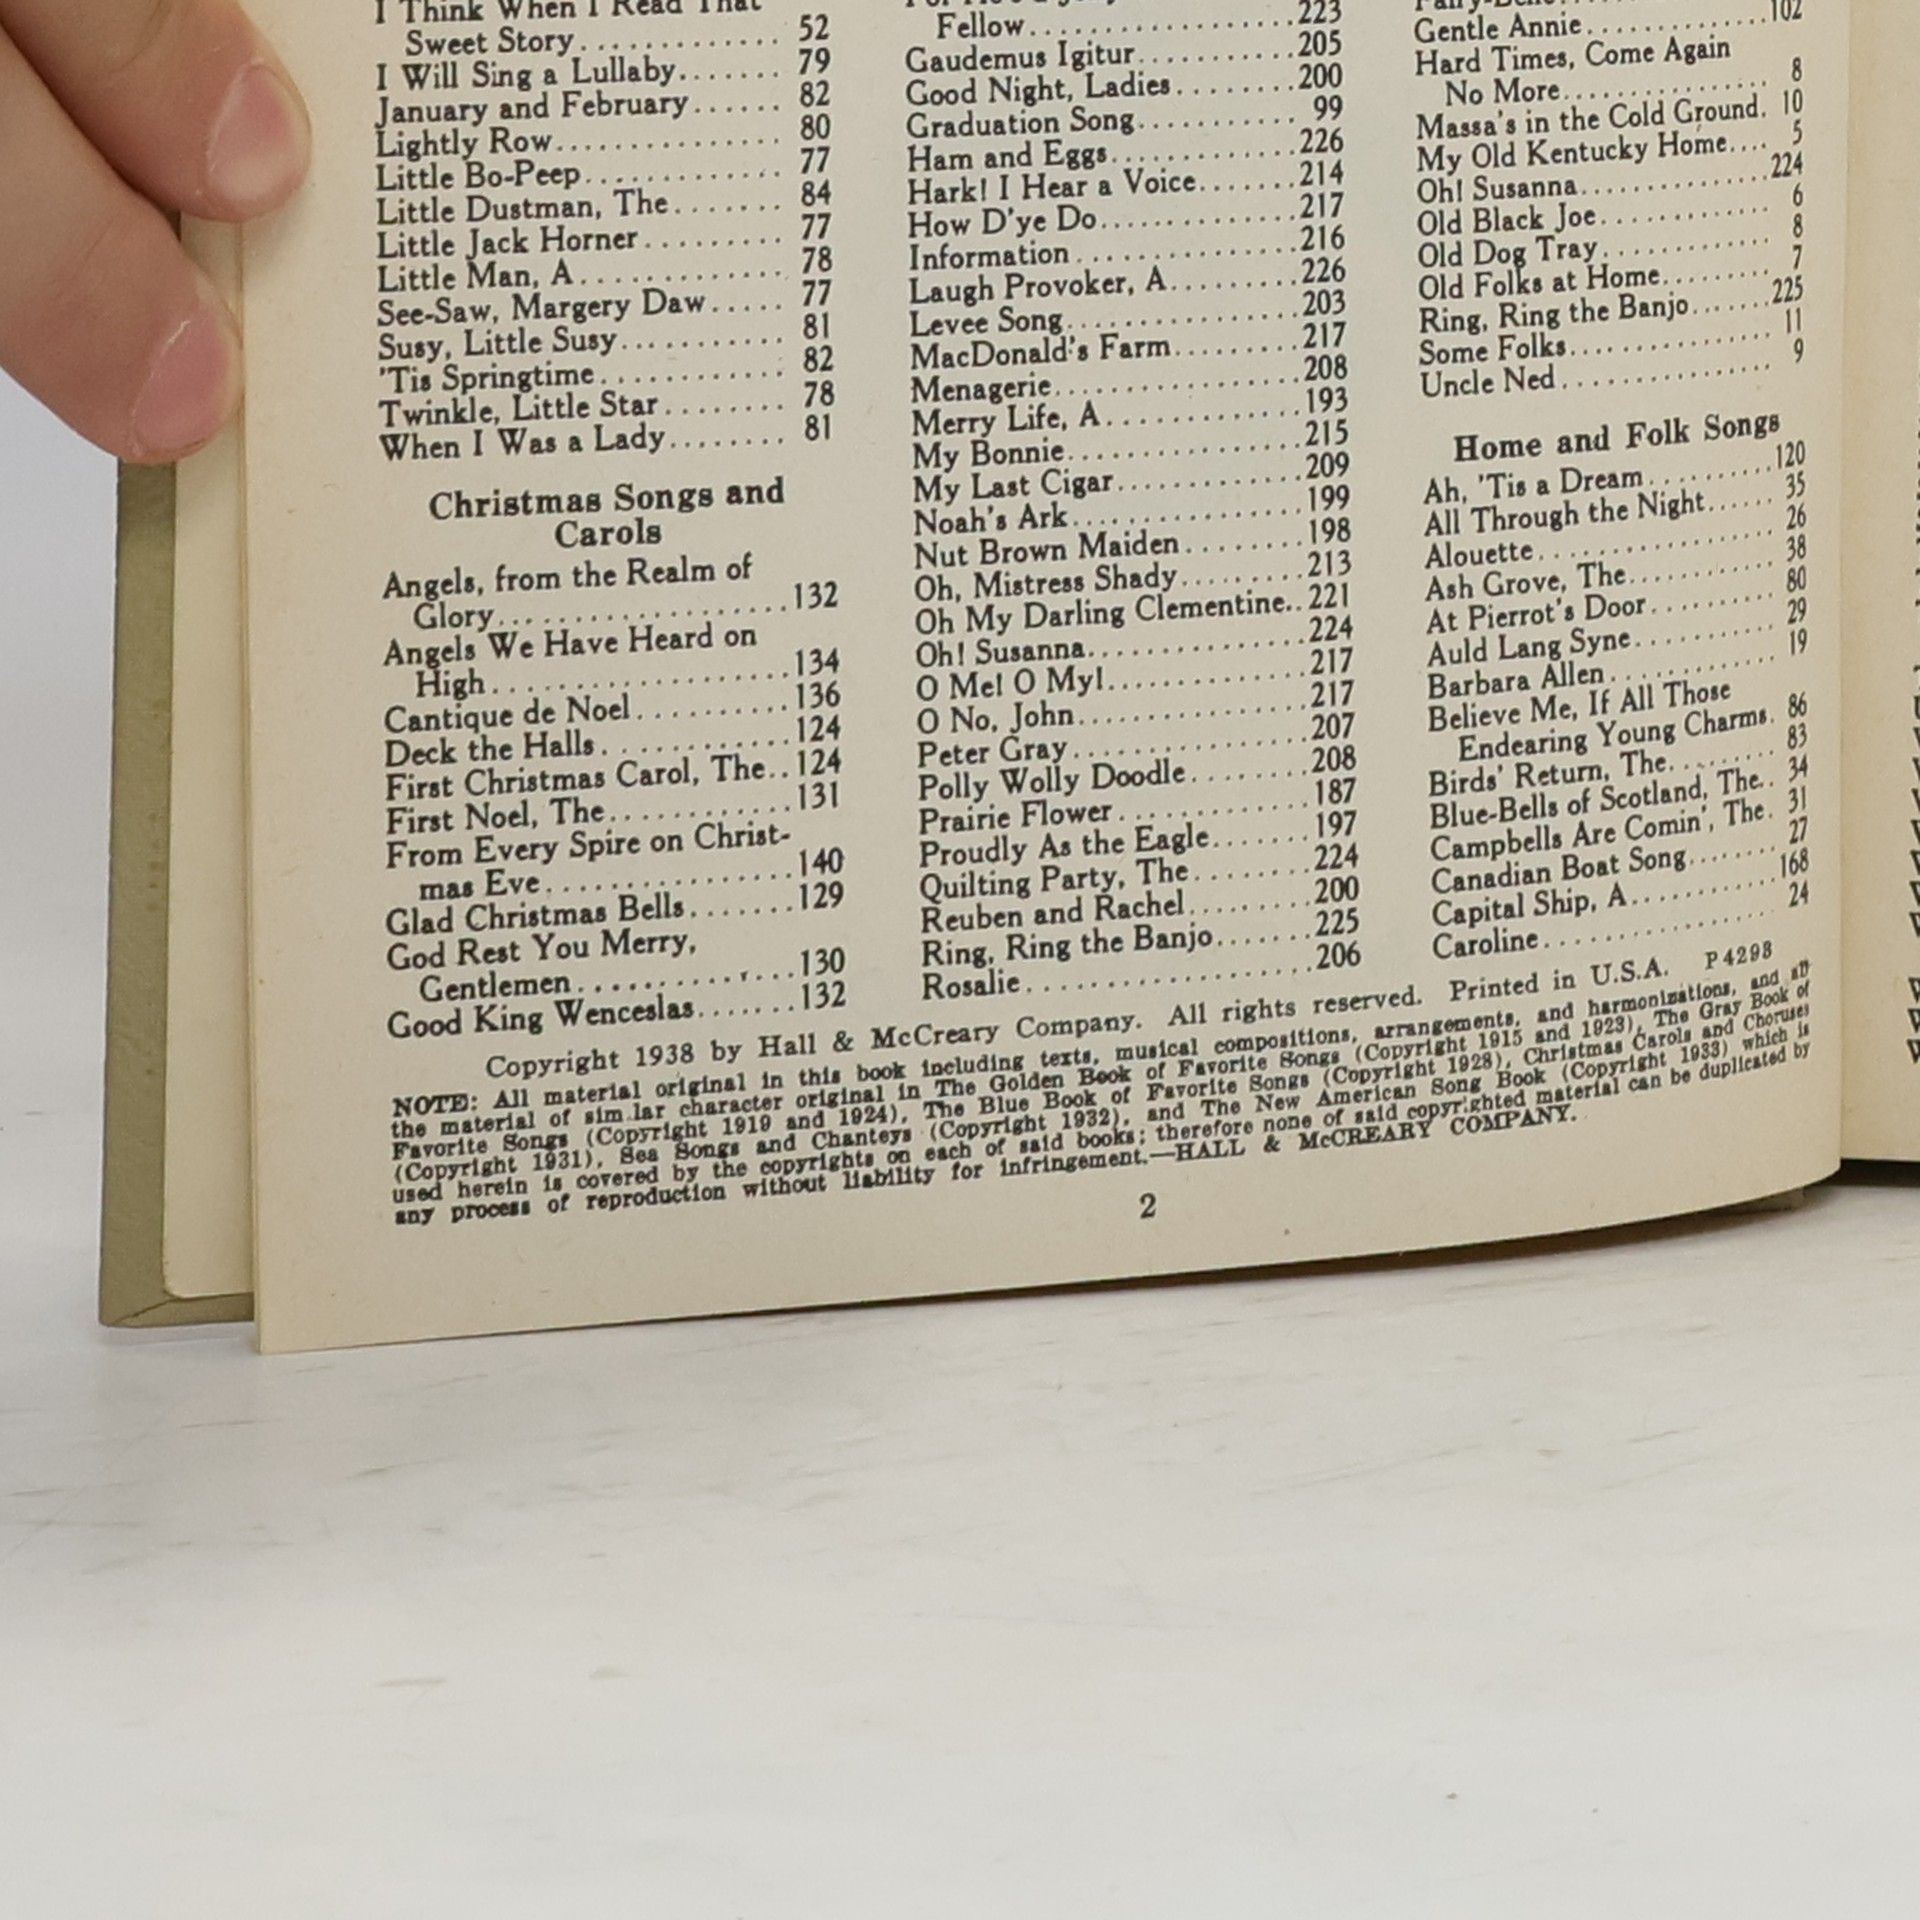 I Think When I Read That
Sweet Story............. 52
I Will Sing a Lullaby....... 79
January and February...... 82
Lightly Row............... 80
Little Bo-Peep............. 77
Little Dustman, The....... 84
Little Jack Horner......... 77
Little Man, A.............. 78
See-Saw, Margery Daw..... 77
Susy, Little Susy........... 81
'Tis Springtime............ 82
Twinkle, Little Star........ 78
When I Was a Lady........ 81
Christmas Songs and
Carols
Angels, from the Realm of
Glory...................132
Angels We Have Heard on
High....................134
Cantique de Noel..........136
Deck the Halls............124
First Christmas Carol, The..124
First Noel, The...........131
From Every Spire on Christ-
mas Eve................140
Glad Christmas Bells.......129
God Rest You Merry,
Gentlemen..............130
Good King Wenceslas.......132
Fellow..................223
Gaudemus Igitur...........205
Good Night, Ladies.........200
Graduation Song........... 99
Ham and Eggs.............226
Hark! I Hear a Voice.......214
How D'ye Do..............217
Information................216
Laugh Provoker, A.........226
Levee Song................203
MacDonald's Farm.........217
Menagerie.................208
Merry Life, A.............193
My Bonnie................215
My Last Cigar.............209
Noah's Ark................199
Nut Brown Maiden.........198
Oh, Mistress Shady.........213
Oh My Darling Clementine..221
Oh! Susanna...............224
O Me! O My!..............217
O No, John................217
Peter Gray................207
Polly Wolly Doodle........208
Prairie Flower.............187
Proudly As the Eagle.......197
Quilting Party, The........224
Reuben and Rachel.........200
Ring, Ring the Banjo.......225
Rosalie...................206
Gentle Annie..............102
Hard Times, Come Again
No More................ 8
Massa's in the Cold Ground. 10
My Old Kentucky Home.... 5
Oh! Susanna...............224
Old Black Joe............. 6
Old Dog Tray............. 8
Old Folks at Home......... 7
Ring, Ring the Banjo.......225
Some Folks................ 11
Uncle Ned................ 9
Home and Folk Songs
Ah, 'Tis a Dream..........120
All Through the Night...... 35
Alouette................... 26
Ash Grove, The............ 38
At Pierrot's Door.......... 80
Auld Lang Syne........... 29
Barbara Allen............. 19
Believe Me, If All Those
Endearing Young Charms. 86
Birds' Return, The......... 83
Blue-Bells of Scotland, The.. 34
Campbells Are Comin', The. 31
Canadian Boat Song........ 27
Capital Ship, A............168
Caroline................... 24
Copyright 1938 by Hall & McCreary Company. All rights reserved. Printed in U.S.A. P4298
NOTE: All material original in this book including texts, musical compositions, arrangements, and harmonizations, and all
the material of similar character original in The Golden Book of Favorite Songs (Copyright 1915 and 1923), The Gray Book of
Favorite Songs (Copyright 1919 and 1924), The Blue Book of Favorite Songs (Copyright 1928), Christmas Carols and Choruses
(Copyright 1931), Sea Songs and Chanteys (Copyright 1932), and The New American Song Book (Copyright 1933) which is
used herein is covered by the copyrights on each of said books; therefore none of said copyrighted material can be duplicated by
any process of reproduction without liability for infringement.—HALL & McCREARY COMPANY.
2